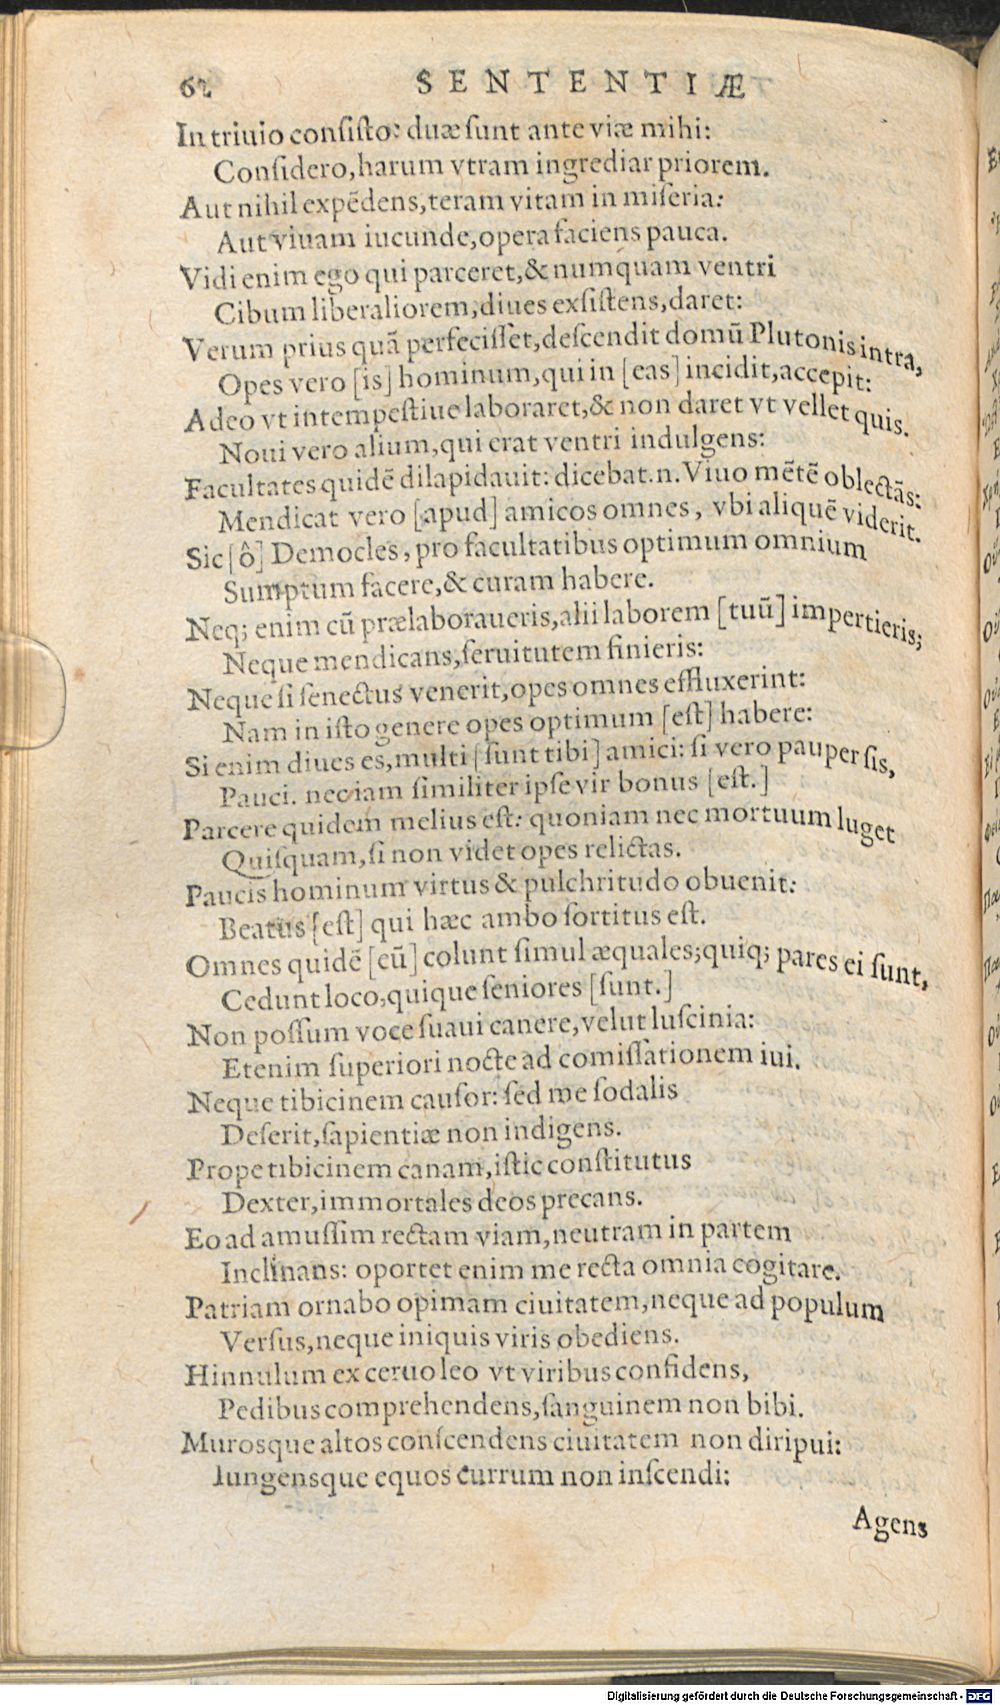 62 SENTENTIÆ
In triuio consisto: duæ sunt ante viæ mihi:
Considero, harum vtram ingrediar priorem.
Aut nihil expẽdens, teram vitam in miseria:
Aut viuam iucunde, opera faciens pauca.
Vidi enim ego qui parceret, & numquam ventri
Cibum liberaliorem, diues exsistens, daret:
Verum prius quã perfecisset, descendit domũ Plutonis intra,
Opes vero [is] hominum, qui in [eas] incidit, accepit:
Adeo vt intempestiue laboraret, & non daret vt vellet quis.
Noui vero alium, qui erat ventri indulgens:
Facultates quidẽ dilapidauit: dicebat .n. Viuo mẽtẽ oblectãs:
Mendicat vero [apud] amicos omnes, vbi aliquẽ viderit.
Sic [ô] Democles, pro facultatibus optimum omnium
Sumptum facere, & curam habere.
Neq; enim cũ prælaboraueris, alii laborem [tuũ] impertieris;
Neque mendicans, seruitutem finieris:
Neque si senectus venerit, opes omnes effluxerint:
Nam in isto genere opes optimum [est] habere:
Si enim diues es, multi [sunt tibi] amici: si vero pauper sis,
Pauci. nec iam similiter ipse vir bonus [est.]
Parcere quidem melius est: quoniam nec mortuum luget
Quisquam, si non videt opes relictas.
Paucis hominum virtus & pulchritudo obuenit:
Beatus [est] qui hæc ambo sortitus est.
Omnes quidẽ [eũ] colunt simul æquales; quiq; pares ei sunt,
Cedunt loco, quique seniores [sunt.]
Non possum voce suaui canere, velut luscinia:
Etenim superiori nocte ad comissationem iui.
Neque tibicinem causor: sed me sodalis
Deserit, sapientiæ non indigens.
Prope tibicinem canam, istic constitutus
Dexter, immortales deos precans.
Eo ad amussim rectam viam, neutram in partem
Inclinans: oportet enim me recta omnia cogitare.
Patriam ornabo opimam ciuitatem, neque ad populum
Versus, neque iniquis viris obediens.
Hinnulum ex ceruo leo vt viribus confidens,
Pedibus comprehendens, sanguinem non bibi.
Murosque altos conscendens ciuitatem non diripui:
Iungensque equos currum non inscendi:
Agens
Digitalisierung gefördert durch die Deutsche Forschungsgemeinschaft - DFG